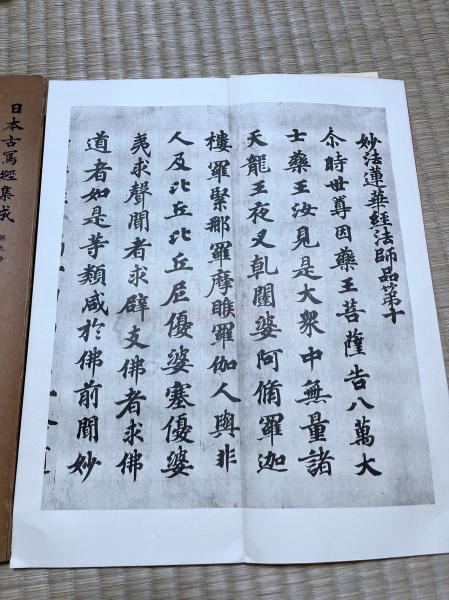 妙法蓮華經法師品第十
尒時世尊因藥王菩薩告八萬大
士藥王汝見是大衆中無量諸
天龍王夜叉乹闥婆阿脩羅迦
樓羅緊那羅摩睺羅伽人與非
人及比丘比丘尼優婆塞優婆
夷求聲聞者求辟支佛者求佛
道者如是等類咸於佛前聞妙
日本古寫經集成